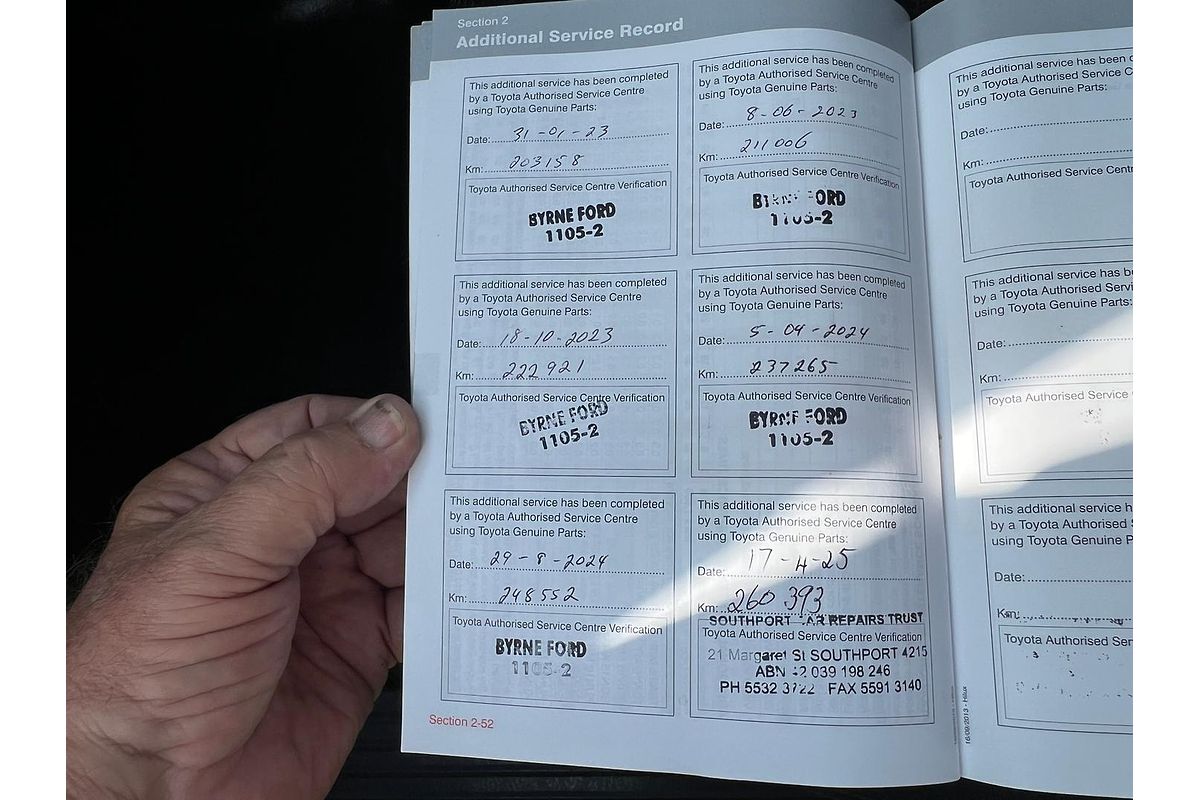 Section 2
Additional Service Record
This additional service has been completed
by a Toyota Authorised Service Centre
using Toyota Genuine Parts:
Date: 31-01-23
Km: 203158
Toyota Authorised Service Centre Verification
BYRNE FORD
1105-2
This additional service has been completed
by a Toyota Authorised Service Centre
using Toyota Genuine Parts:
Date: 8-06-2023
Km: 211006
Toyota Authorised Service Centre Verification
BYRNE FORD
1105-2
This additional service has been completed
by a Toyota Authorised Service Centre
using Toyota Genuine Parts:
Date: 18-10-2023
Km: 222921
Toyota Authorised Service Centre Verification
BYRNE FORD
1105-2
This additional service has been completed
by a Toyota Authorised Service Centre
using Toyota Genuine Parts:
Date: 5-04-2024
Km: 237265
Toyota Authorised Service Centre Verification
BYRNE FORD
1105-2
This additional service has been completed
by a Toyota Authorised Service Centre
using Toyota Genuine Parts:
Date: 29-8-2024
Km: 248552
Toyota Authorised Service Centre Verification
BYRNE FORD
1105-2
This additional service has been completed
by a Toyota Authorised Service Centre
using Toyota Genuine Parts:
Date: 17-4-25
Km: 260 393
SOUTHPORT CAR REPAIRS TRUST
Toyota Authorised Service Centre Verification
21 Margaret St SOUTHPORT 4215
ABN 2 039 198 246
PH 5532 3722 FAX 5591 3140
Section 2-52
16/09/2013 - Hilux
This additional service has been
by a Toyota Authorised Service C
using Toyota Genuine Parts:
Date:
Km:
Toyota Authorised Service Centr
This additional service has b
by a Toyota Authorised Servi
using Toyota Genuine Parts:
Date:
Km:
Toyota Authorised Service
This additional service h
by a Toyota Authorised
using Toyota Genuine P
Date:
Km:
Toyota Authorised Ser